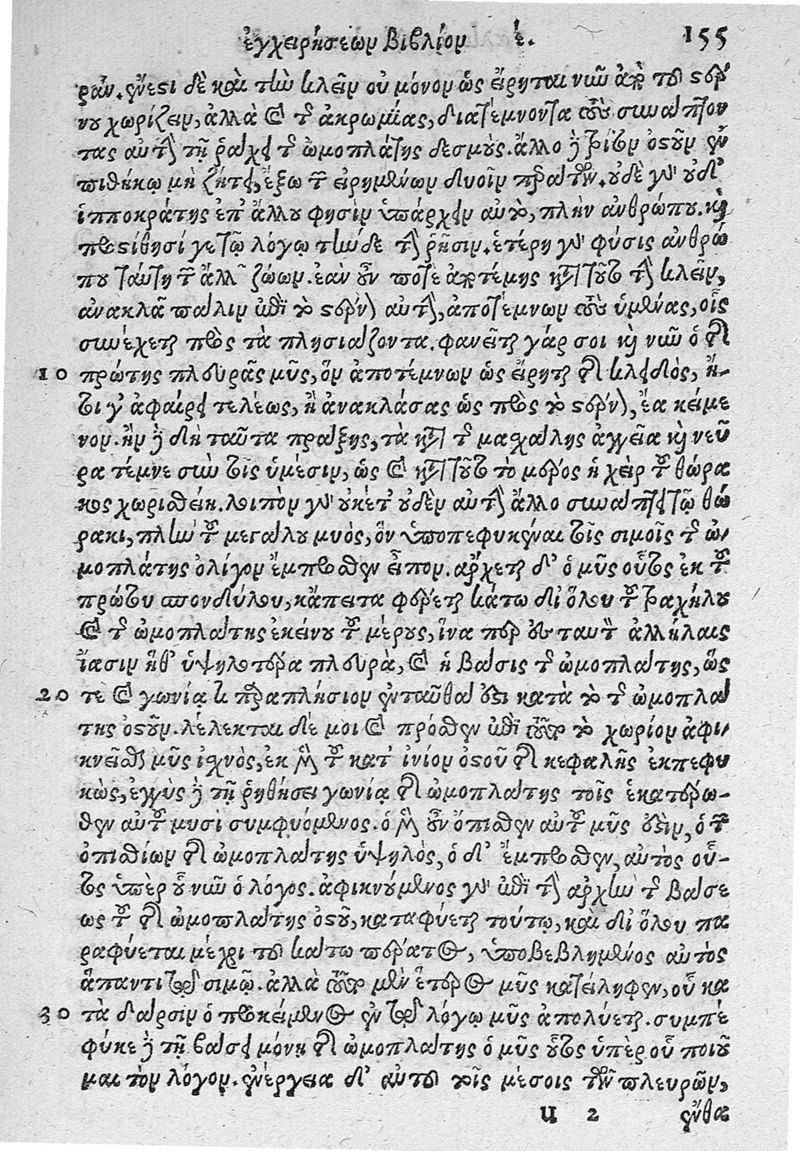 ἐγχειρήσεων Βιβλίον έ. 155
ραν. ἔνεστι δὲ καὶ τὴν κλεῖν οὐ μόνον ὡς εἴρηται νῦν ἀπὸ τοῦ στέρ
νου χωρίζειν, ἀλλὰ καὶ τῆς ἀκρωμίας, διατέμνοντα τοὺς συνάπτον
τας αὐτὴν τῇ ῥάχει τῆς ὠμοπλάτης δεσμούς. ἄλλο δὲ τρίτον ὀστοῦν ἐν
πιθήκῳ μὴ ζήτει, ἔξω τῶν εἰρημένων δυοῖν παρὰ τῶν. οὐδὲ γὰρ οὐδ'
ἱπποκράτης ἐπ' ἄλλου φησὶν ὑπάρχειν αὐτὸ, πλὴν ἀνθρώπου. καὶ
προστίθησί γε τῷ λόγῳ τὴνδε τὴν ῥῆσιν. ἑτέρη γὰρ φύσις ἀνθρώ
που ταύτῃ τῶν ἄλλων ζώων. ἐὰν οὖν ποτε ἀποτέμῃς κατὰ τοῦτο τὴν κλεῖν,
ἀνάκλα πάλιν ἐπὶ τὸ στέρνον αὐτὴν, ἀποτέμνων τοὺς ὑμένας, οἷς
συνέχεται πρὸς τὰ πλησιάζοντα. φανεῖται γάρ σοι καὶ νῦν ὁ τῆς
10 πρώτης πλευρᾶς μῦς, ὃν ἀποτέμνων ὡς εἴρηται τῆς κλειδὸς, ἤ-
τοι γ' ἀφαίρει τελέως, ἢ ἀνακλάσας ὡς πρὸς τὸ στέρνον, ἔα κείμε
νον. ἢν δὲ δὴ ταῦτα πράξῃς, τὰ κατὰ τῆς μασχάλης ἀγγεῖα καὶ νεῦ
ρα τέμνε σὺν τοῖς ὑμέσιν, ὡς καὶ κατὰ τοῦτο τὸ μέρος ἡ χεὶρ τοῦ θώρα
κος χωρισθείη. λοιπὸν γὰρ οὐκέτ' οὐδὲν αὐτὴν ἄλλο συνάπτει τῷ θώ
ρακι, πλὴν τοῦ μεγάλου μυὸς, ὃν ὑποπεφυκέναι τοῖς σιμοῖς τῆς ὠ-
μοπλάτης ὀλίγον ἔμπροσθεν εἶπον. ἄρχεται δ' ὁ μῦς οὗτος ἐκ τοῦ
πρώτου σπονδύλου, κἄπειτα φέρεται κάτω δι' ὅλου τοῦ τραχήλου
καὶ τῆς ὠμοπλάτης ἐκείνου τοῦ μέρους, ἵνα περ εἰς ταυτὸ ἀλλήλαις
ἴασιν ἥθ' ὑψηλοτέρα πλευρὰ, καὶ ἡ βάσις τῆς ὠμοπλάτης, ὥς
20 τε καὶ γωνίᾳ τι παραπλήσιον ἐνταῦθά ἐστι κατὰ τὸ τῆς ὠμοπλά
της ὀστοῦν. λέλεκται δέ μοι καὶ πρόσθεν ἐπὶ τοῦτο τὸ χωρίον ἀφι-
κνεῖσθαι μῦς ἰχνὸς, ἐκ μὲν τοῦ κατ' ἰνίον ὀστοῦ τῆς κεφαλῆς ἐκπεφυ
κὼς, ἐγγὺς δὲ τῇ ῥηθήσει γωνίᾳ τῆς ὠμοπλάτης τοῖς ἑκατέρω-
θεν αὐτοῦ μυσὶ συμφυόμενος. ὁ μὲν οὖν ὄπισθεν αὐτοῦ μῦς ἐστιν, ὁ τῶν
ὀπισθίων τῆς ὠμοπλάτης ὑψηλὸς, ὁ δ' ἔμπροσθεν, αὐτὸς οὗ-
τος ὑπὲρ οὗ νῦν ὁ λόγος. ἀφικνούμενος γὰρ ἐπὶ τὴν ἀρχὴν τῆς βάσε
ως τοῦ τῆς ὠμοπλάτης ὀστοῦ, καταφύεται τούτῳ, καὶ δι' ὅλου πα
ραφύεται μέχρι τοῦ κάτω πέρατος, ὑποβεβλημένος αὐτὸς
ἅπαντι τῷ σιμῷ. ἀλλὰ τοῦτο μὲν ἕτερος μῦς κατείληφεν, οὗ κα
30 τὰ δίαρσιν ὁ προκείμενος ἐν τῷ λόγῳ μῦς ἀπολύεται. συμπέ
φυκε δὲ τῇ βάσει μόνῃ τῆς ὠμοπλάτης ὁ μῦς οὗτος ὑπὲρ οὗ ποιοῦ
μαι τὸν λόγον. ἐνέργεια δ' αὐτοῦ τοῖς μέσοις τῶν πλευρῶν,
u 2 ἔνθα